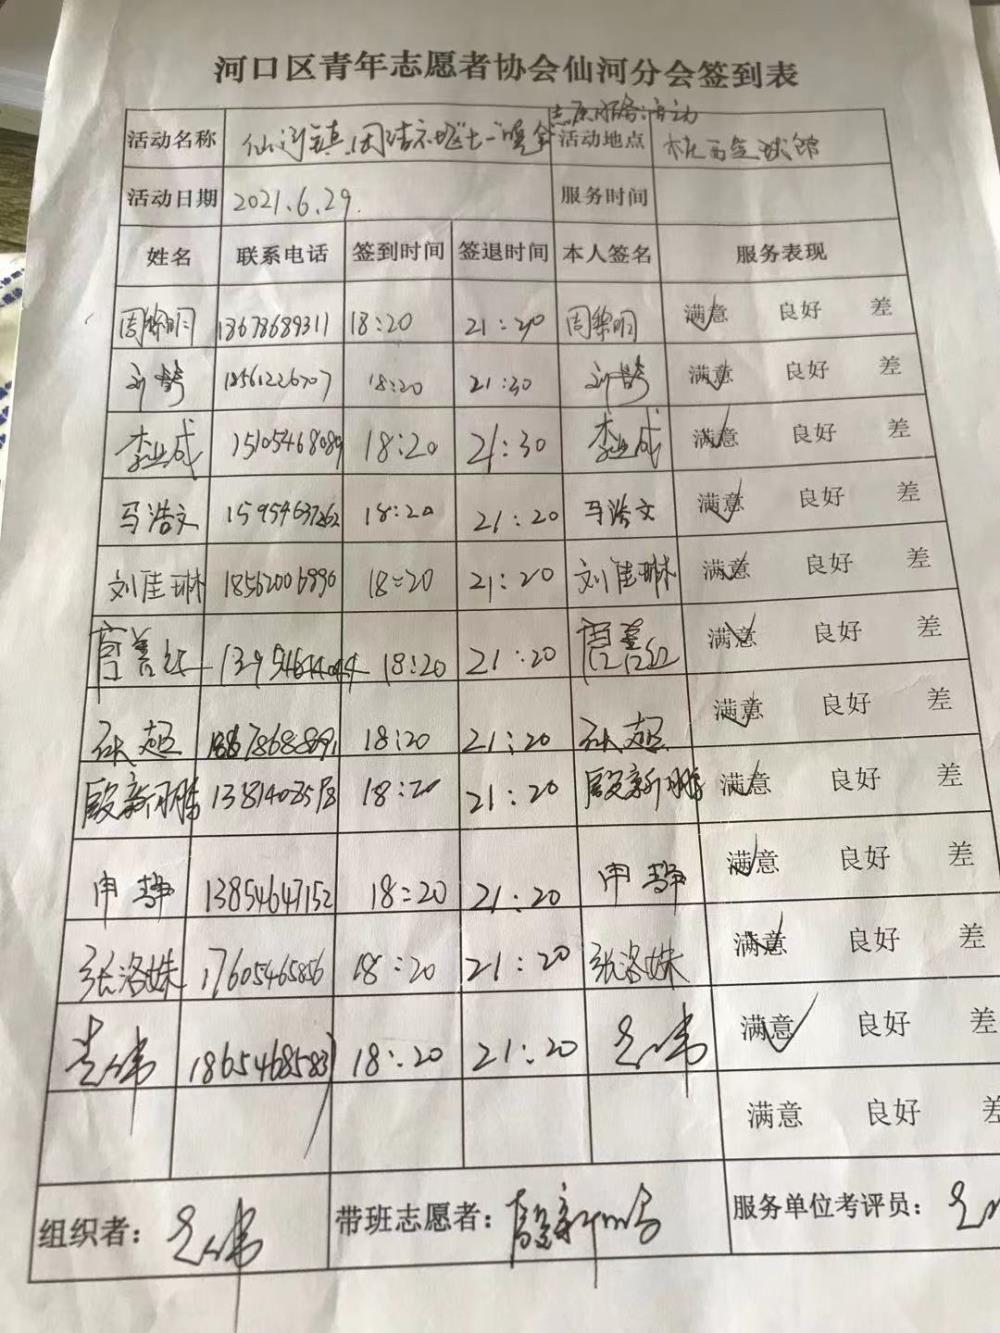 河口区青年志愿者协会仙河分会签到表
志愿服务活动
活动名称 仙河镇团结社区"七一"晚会 活动地点
活动日期 2021.6.29. 服务时间
姓名 联系电话 签到时间 签退时间 本人签名 服务表现
周黎明 13678689311 18:20 21:20 周黎明 满意 良好 差
18:20 21:30 满意 良好 差
李业成 15105468089 18:20 21:30 李业成 满意 良好 差
马浩文 15954637262 18:20 21:20 马浩文 满意 良好 差
刘佳琳 18562006990 18:20 21:20 刘佳琳 满意 良好 差
18:20 21:20 满意 良好 差
18:20 21:20 满意 良好 差
殷新鹏 18:20 21:20 殷新鹏 满意 良好 差
申静 13854647152 18:20 21:20 申静 满意 良好 差
张洛姝 17605465856 18:20 21:20 张洛姝 满意 良好 差
18:20 21:20 满意 良好 差
满意 良好 差
组织者: 带班志愿者: 殷新鹏 服务单位考评员: